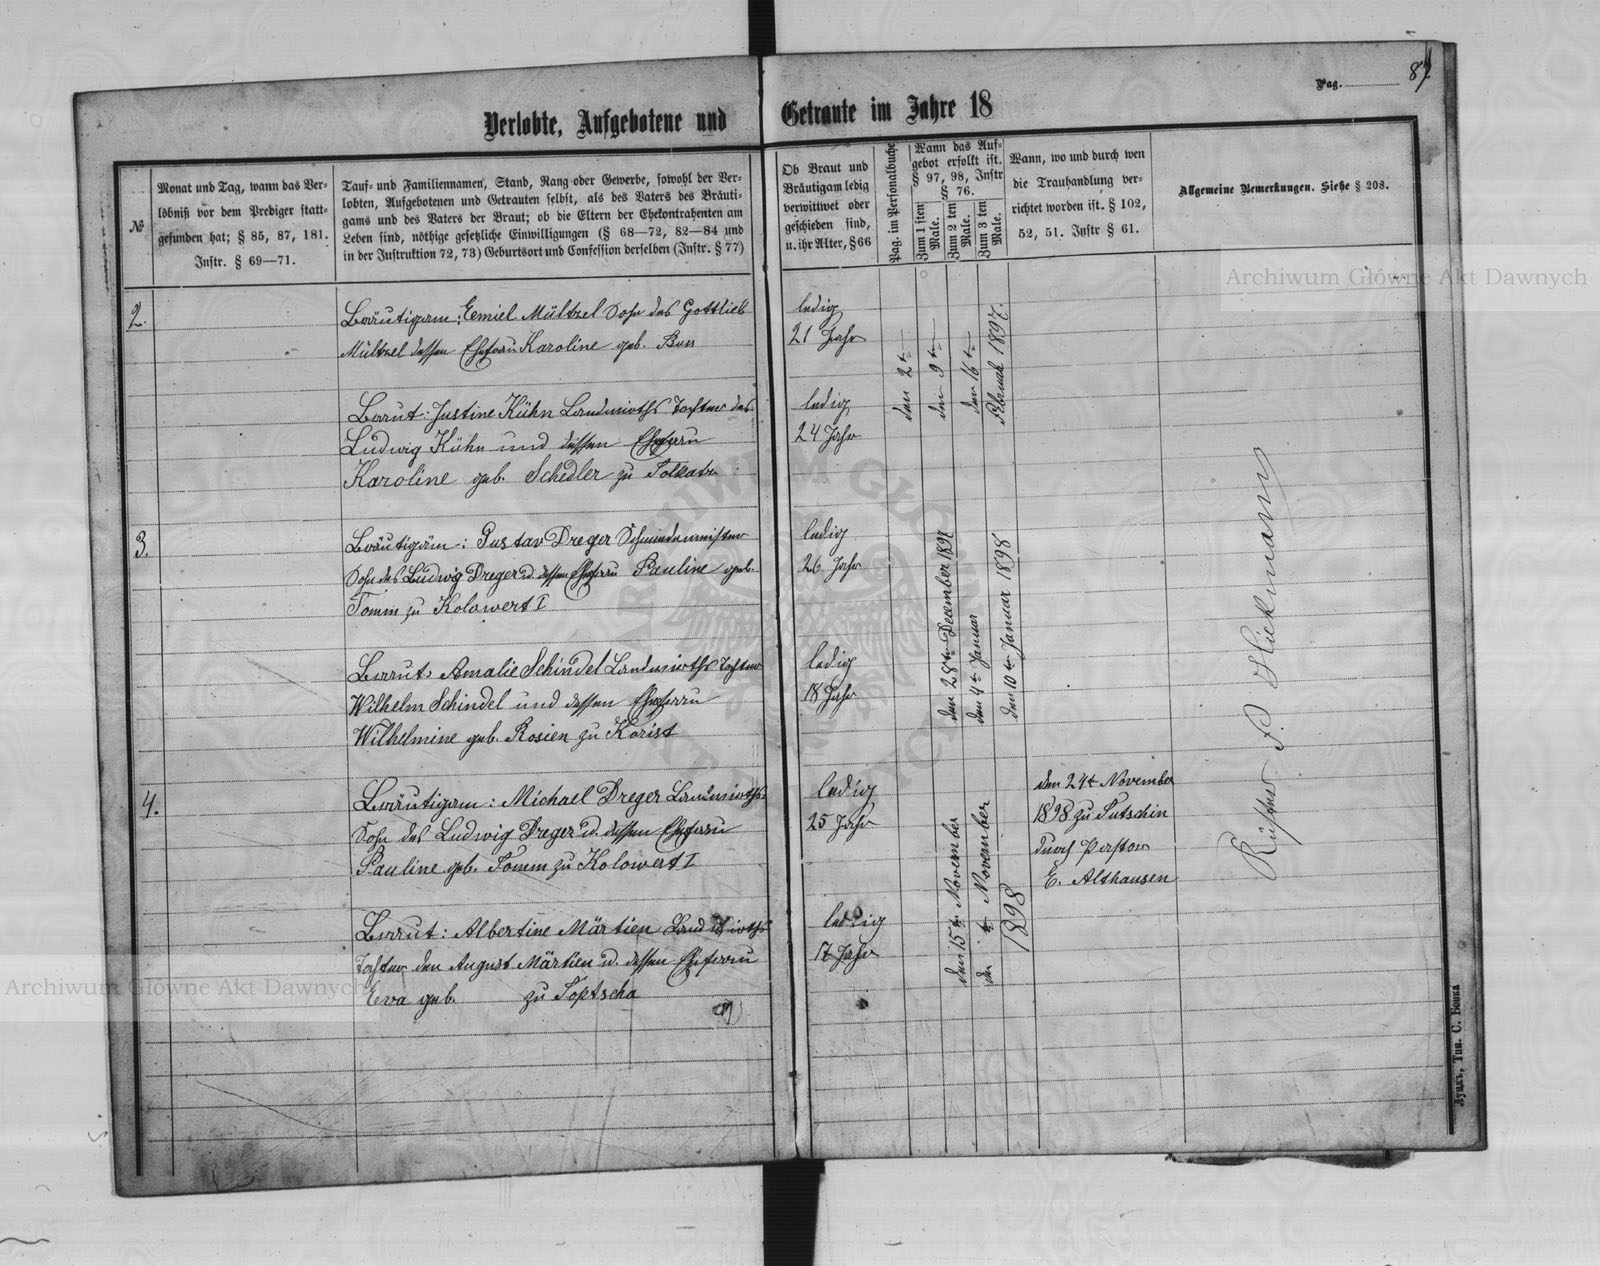 Pag. 87
Verlobte, Aufgebotene und Getraute im Jahre 18
№
Monat und Tag, wann das Ver-
löbniß vor dem Prediger statt-
gefunden hat; § 85, 87, 181.
Instr. § 69—71.
Tauf- und Familiennamen, Stand, Rang oder Gewerbe, sowohl der Ver-
lobten, Aufgebotenen und Getrauten selbst, als des Vaters des Bräuti-
gams und des Vaters der Braut; ob die Eltern der Ehekontrahenten am
Leben sind, nöthige gesetzliche Einwilligungen (§ 68—72, 82—84 und
in der Instruktion 72, 73) Geburtsort und Confession derselben (Instr. § 77)
Ob Braut und
Bräutigam ledig
verwittwet oder
geschieden sind,
u. ihr Alter, § 66
Pag. im Personalbuche
Wann das Auf-
gebot erfolkt ist.
§ 97, 98, Instr
§ 76.
Zum 1 sten
Male.
Zum 2 ten
Male.
Zum 3 ten
Male.
Wann, wo und durch wen
die Trauhandlung ver-
richtet worden ist. § 102,
52, 51. Instr § 61.
Allgemeine Bemerkungen. Siehe § 208.
2.
Bräutigam: Eemiel Mültzel Sohn des Gottlieb
Mültzel dessen Ehefrau Karoline geb.
Braut: Justine Kühn Landwirths Tochter des
Ludwig Kühn und dessen Ehefrau
Karoline geb. Schedler zu
ledig
21 Jahr
ledig
24 Jahr
den 2 t
den 9 t
den 16 t
Februar 1897.
3.
Bräutigam: Gustav Dreger Schmiedemeister
Sohn des Ludwig Dreger u. dessen Ehefrau Pauline geb.
Tomm zu Kolowert I
Braut: Amalie Schindel Landwirths Tochter
Wilhelm Schindel und dessen Ehefrau
Wilhelmine geb. Rosien zu Korist
ledig
26 Jahr
ledig
18 Jahr
den 28 t December 1897
den 4 t Januar
den 10 t Januar 1898
4.
Bräutigam: Michael Dreger Landwirths
Sohn des Ludwig Dreger u. dessen Ehefrau
Pauline geb. Tomm zu Kolowert I
Braut: Albertine Märtien Landwirths
Tochter den August Märtien u. dessen Ehefrau
Eeva geb. zu Toptscha
ledig
25 Jahr
ledig
17 Jahr
den 15 t November
den t November
1898
den 24 t November
1898 zu Tutschin
durch Pastor
E. Althausen
Küster
Луцкъ, Тип. С. Бонка
Archiwum Główne Akt Dawnych
Archiwum Główne Akt Dawnych